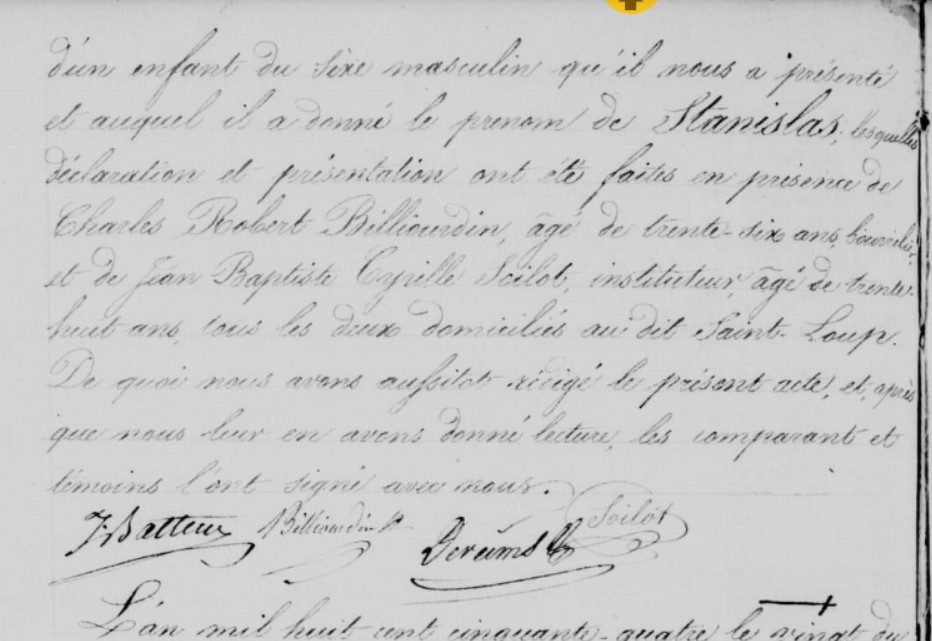 d'un enfant du sixe masculin qu'il nous a présenté
et auquel il a donné le prenom de Stanislas, lesquelles
déclaration et présentation ont été faites en présence de
Charles Robert Billiourdin, âgé de trente-six ans, bourrelier,
et de Jean Baptiste Cyrille Soilot, instituteur, âgé de trente-
huit ans, tous les deux domiciliés au dit Saint-Loup.
De quoi nous avons aussitot rédigé le présent acte, et, après
que nous leur en avons donné lecture, les comparant et
témoins l'ont signé avec nous.
J. Batteux Billiourdin Soilot
L'an mil huit cent cinquante-quatre le vingt du